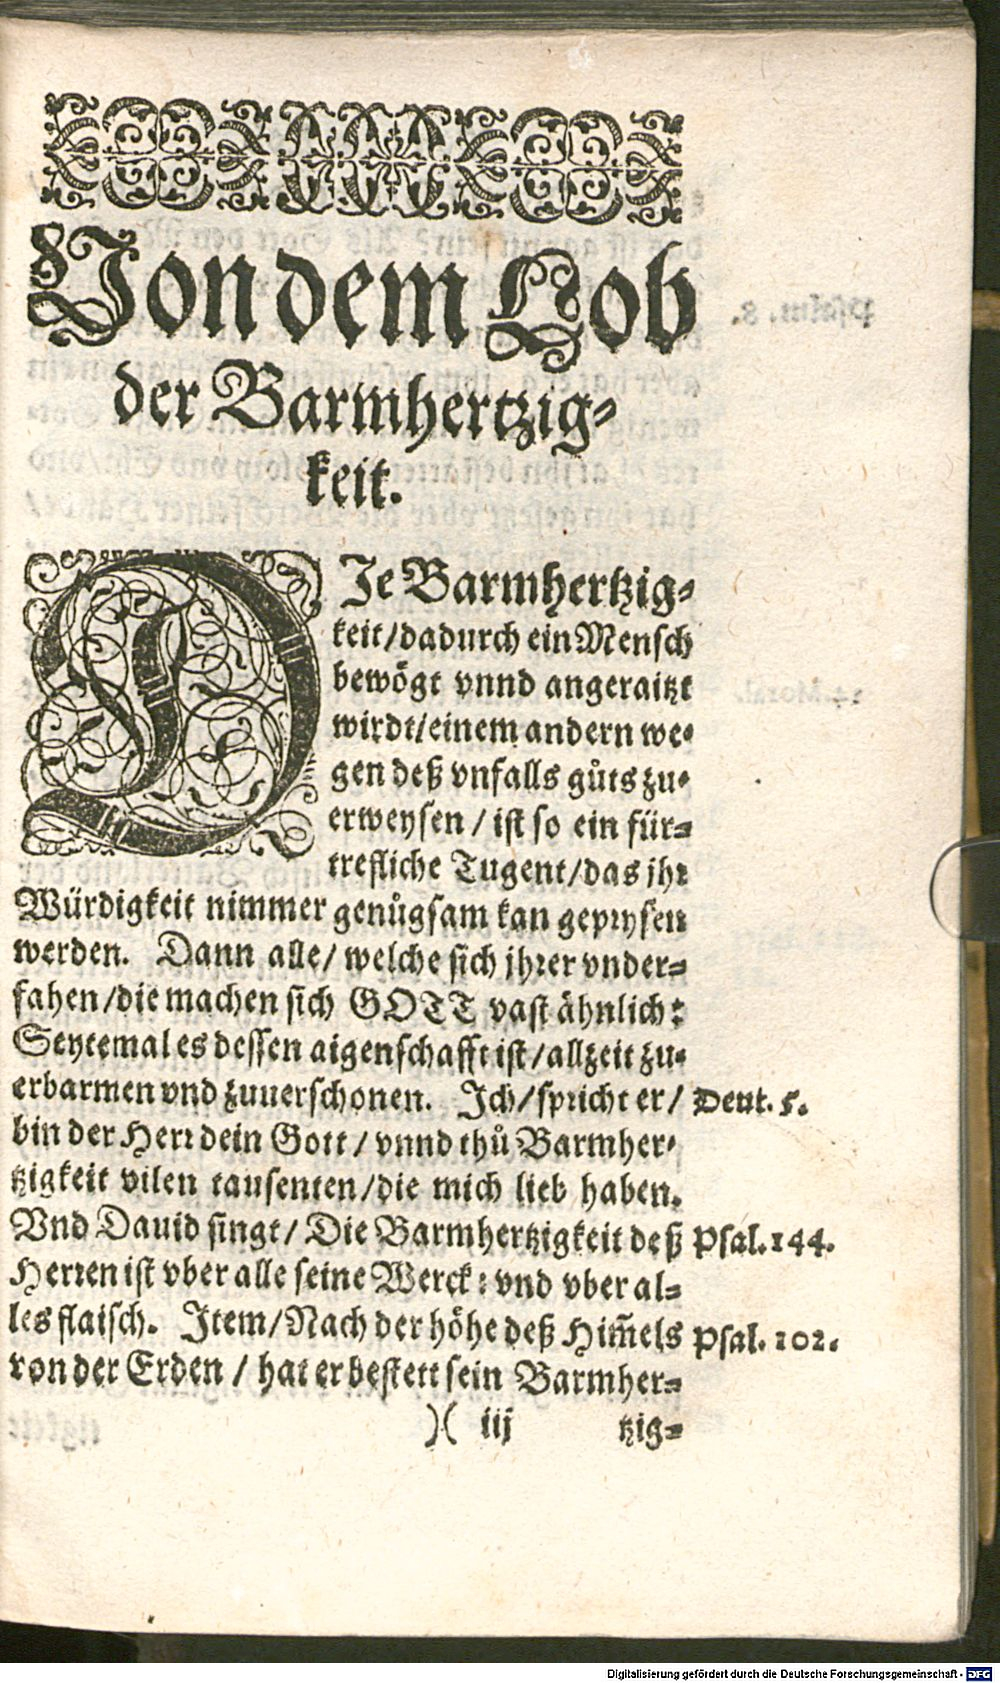 Von dem Lob
der Barmhertzig⸗
keit.
DIe Barmhertzig⸗
keit/dadurch ein Mensch
bewögt vnnd angeraitzt
wirdt/einem andern we⸗
gen deß vnfalls gůts zu⸗
erweysen/ist so ein für⸗
trefliche Tugent/das ihr
Würdigkeit nimmer genůgsam kan geprysen
werden. Dann alle/welche sich jhrer vnder⸗
fahen/die machen sich GOTT vast ähnlich:
Seytemal es dessen aigenschafft ist/allzeit zu⸗
erbarmen vnd zuuerschonen. Ich/spricht er/ Deut. 5.
bin der Herr dein Gott/vnnd thů Barmher⸗
tzigkeit vilen tausenten/die mich lieb haben.
Vnd Dauid singt/Die Barmhertzigkeit deß Psal. 144.
Herren ist vber alle seine Werck: vnd vber al⸗
les flaisch. Item/Nach der höhe deß Him̃els Psal. 102.
von der Erden/hat er bestett sein Barmher⸗
)( iij tzig⸗
Digitalisierung gefördert durch die Deutsche Forschungsgemeinschaft - DFG